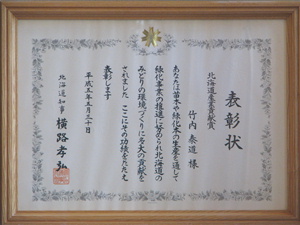 表彰状
北海道産業貢献賞
竹内泰道様
あなたは苗木や緑化木の生産を通して
緑化事業の推進に努められ北海道の
みどりの環境づくりに多大の貢献を
されました ここにその功績をたたえ
表彰します
平成五年五月三十日
北海道知事 横路孝弘